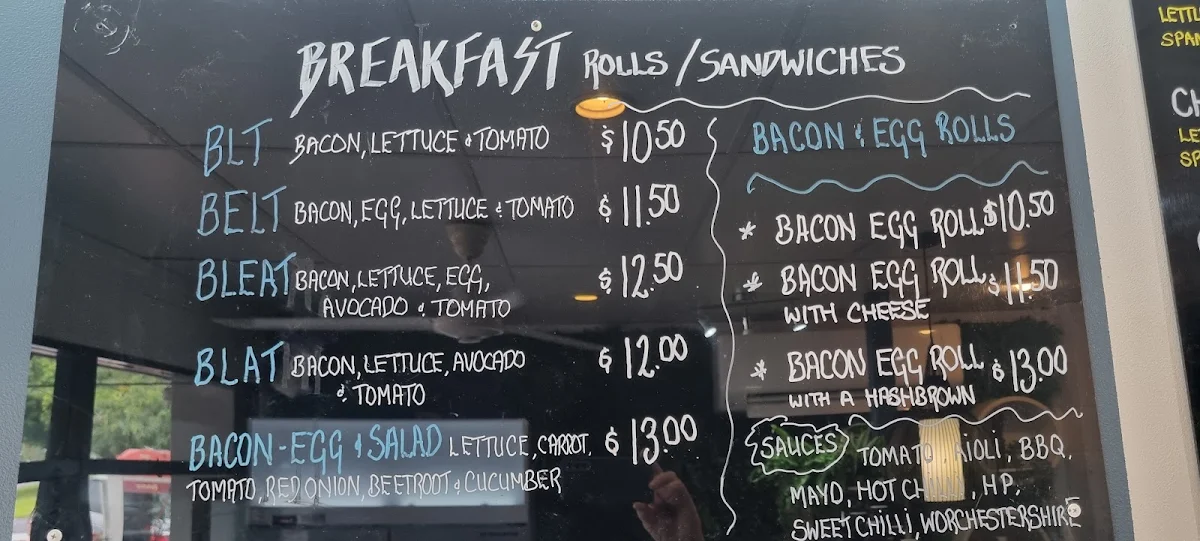 BREAKFAST ROLLS / SANDWICHES
BLT BACON, LETTUCE & TOMATO $10.50
BELT BACON, EGG, LETTUCE & TOMATO $11.50
BLEAT BACON, LETTUCE, EGG, $12.50
AVOCADO & TOMATO
BLAT BACON, LETTUCE, AVOCADO $12.00
& TOMATO
BACON-EGG & SALAD LETTUCE, CARROT, $13.00
TOMATO, RED ONION, BEETROOT & CUCUMBER
BACON & EGG ROLLS
* BACON EGG ROLL $10.50
* BACON EGG ROLL $11.50
WITH CHEESE
* BACON EGG ROLL $13.00
WITH A HASHBROWN
SAUCES TOMATO, AIOLI, BBQ,
MAYO, HOT , HP,
SWEET CHILLI, WORCHESTERSHIRE
LETTU
SPAN
CH
LE
SP